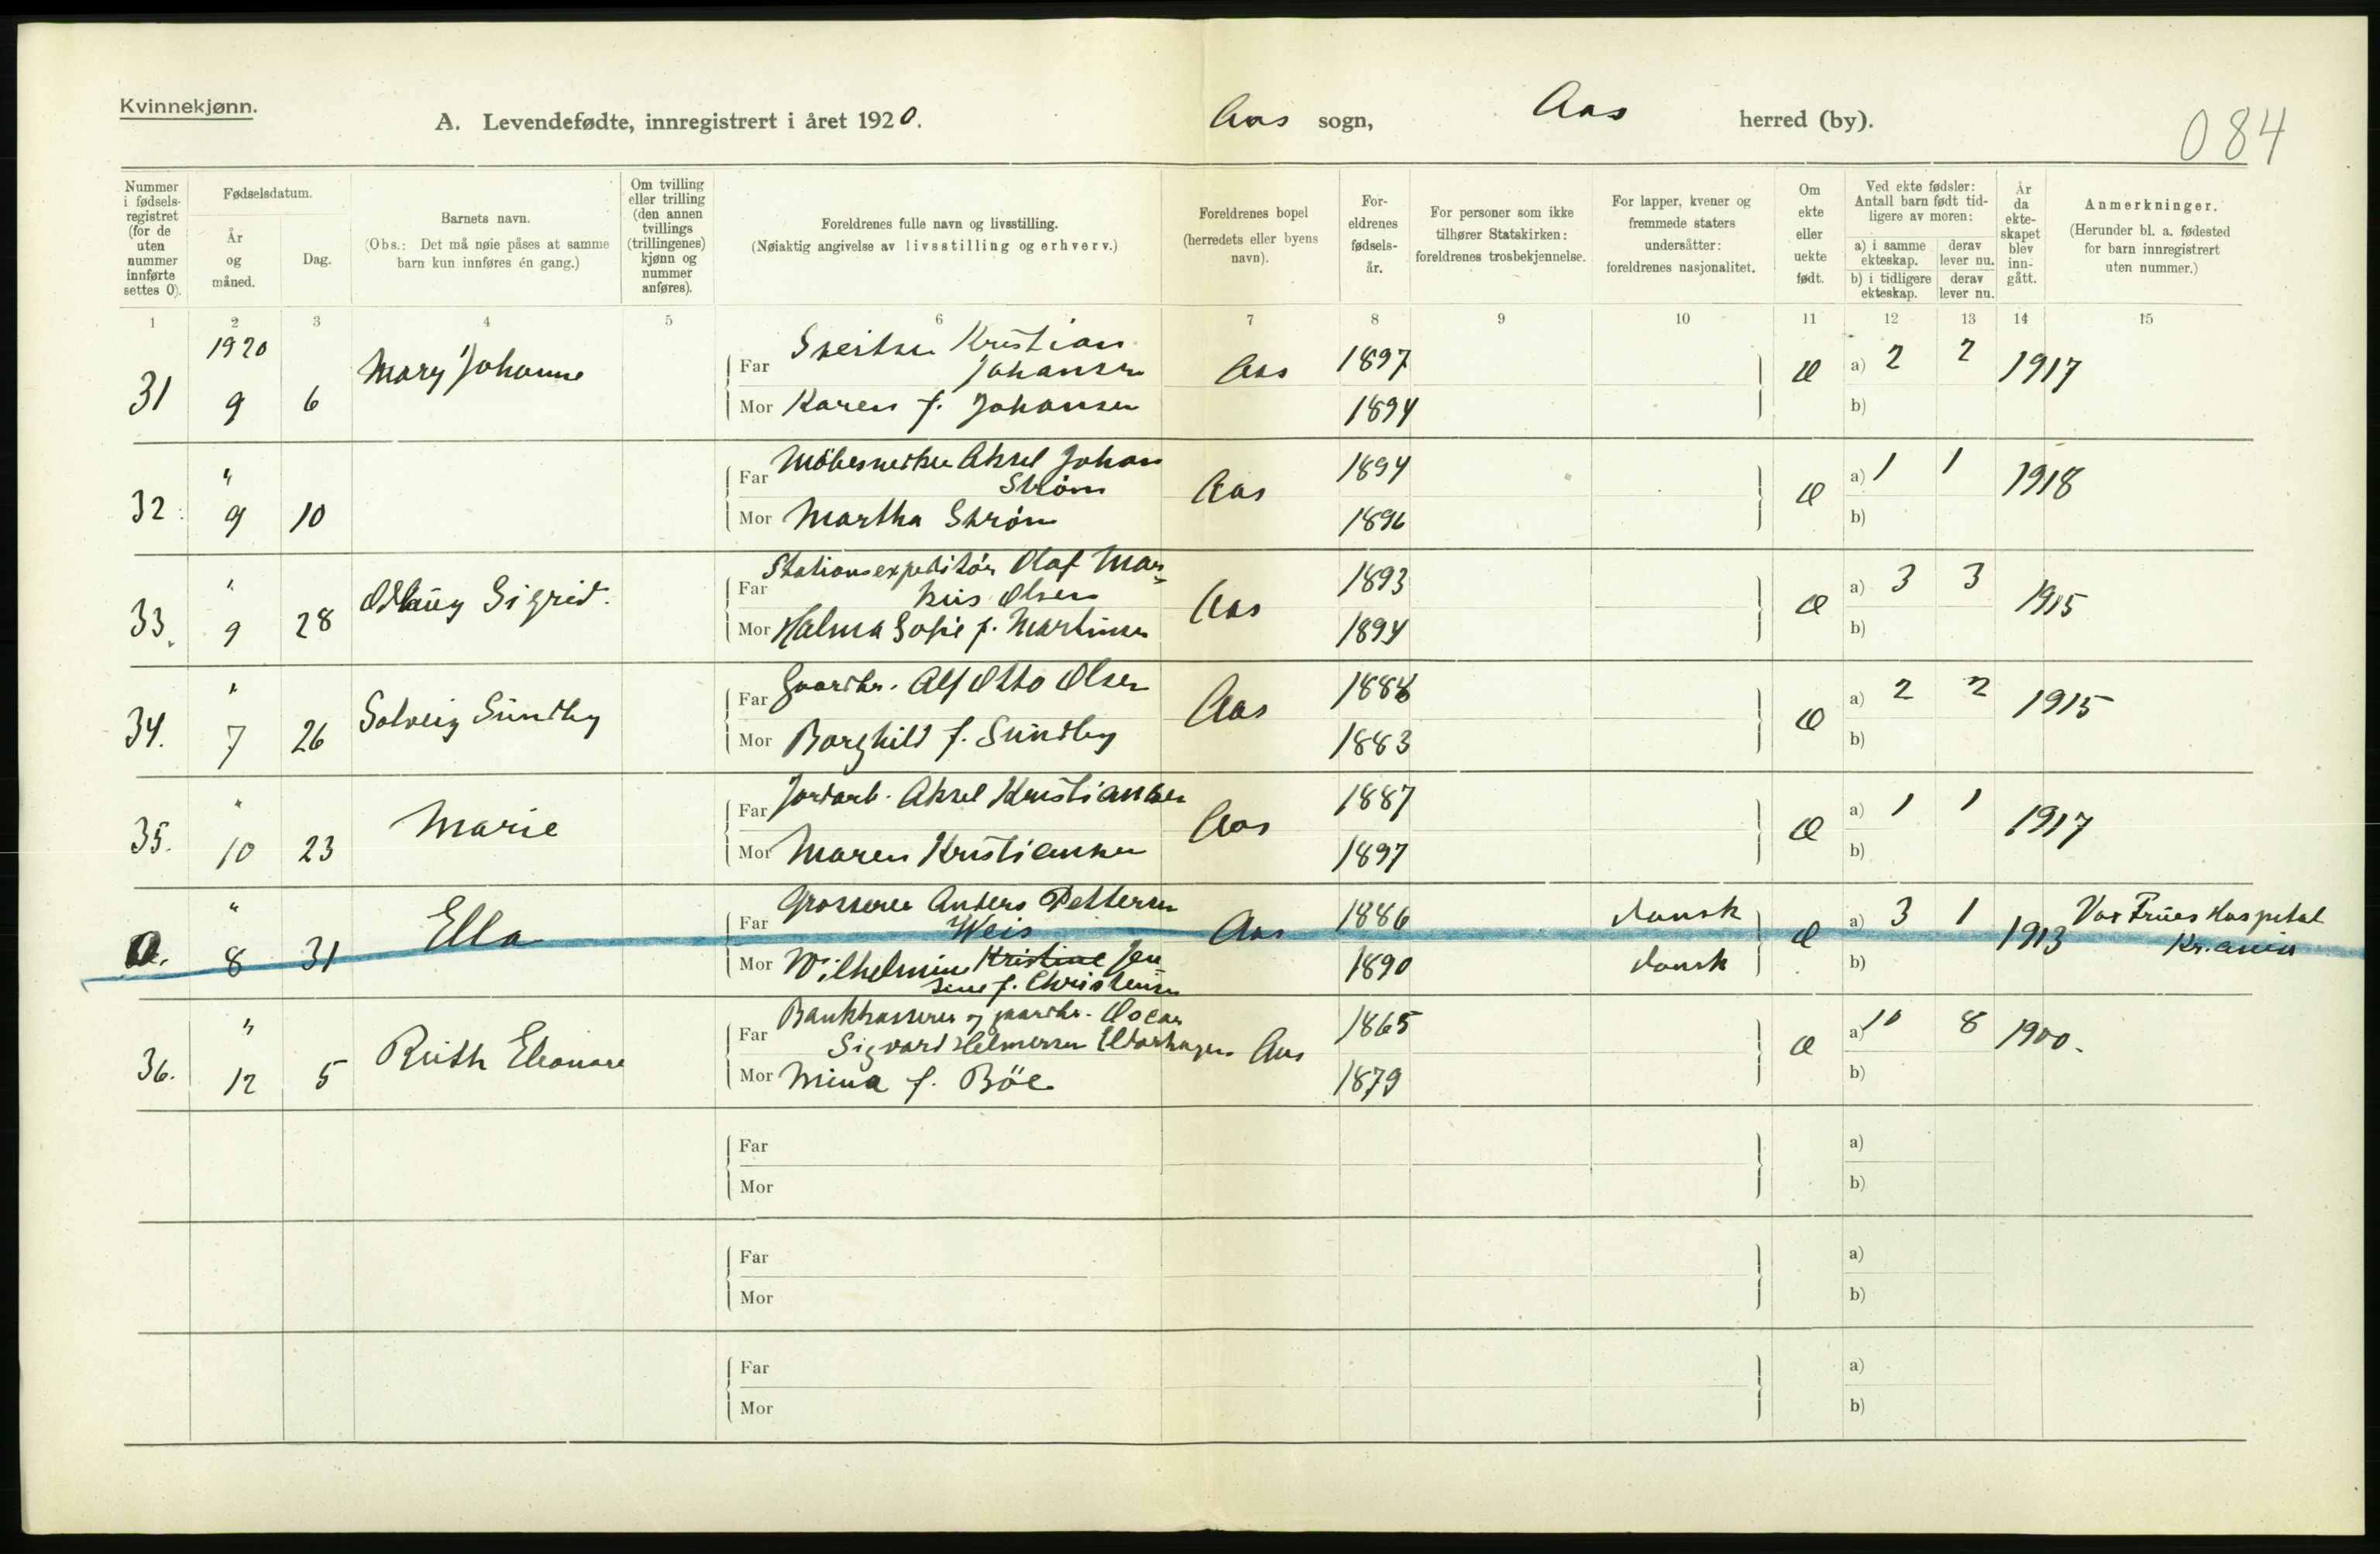 Kvinnekjønn.
A. Levendefødte, innregistrert i året 1920. Aas sogn, Aas herred (by).
084
Nummer i fødselsregistret (for de uten nummer innførte settes 0).
Fødselsdatum.
År og måned.
Dag.
Barnets navn.
(Obs.: Det må nøie påses at samme barn kun innføres én gang.)
Om tvilling eller trilling (den annen tvillings (trillingenes) kjønn og nummer anføres).
Foreldrenes fulle navn og livsstilling.
(Nøiaktig angivelse av livsstilling og erhverv.)
Foreldrenes bopel (herredets eller byens navn).
Foreldrenes fødselsår.
For personer som ikke tilhører Statskirken: foreldrenes trosbekjennelse.
For lapper, kvener og fremmede staters undersåtter: foreldrenes nasjonalitet.
Om ekte eller uekte født.
Ved ekte fødsler: Antall barn født tidligere av moren:
a) i samme ekteskap. derav lever nu.
b) i tidligere ekteskap. derav lever nu.
År da ekteskapet blev inngått.
Anmerkninger.
(Herunder bl. a. fødested for barn innregistrert uten nummer.)
1 2 3 4 5 6 7 8 9 10 11 12 13 14 15
1920
31 9 6 Mary Johanne
Far Sveitser Kristian
Johansen Aas 1897 Æ a) 2 2 1917
Mor Karen f. Johansen 1894 b)
32 " 9 10
Far Aksel Johan
Strøm Aas 1894 Æ a) 1 1 1918
Mor Martha Strøm 1896 b)
33. " 9 28 Odlaug Sigrid.
Far Stationsexpeditør Olaf Mar-
kus Olsen Aas 1893 Æ a) 3 3 1915
Mor Halma Sofie f. Martinsen 1894 b)
34. " 7 26 Solveig Sundby
Far Gaardbr. Alf Otto Olsen Aas 1888 Æ a) 2 2 1915
Mor Borghild f. Sundby 1883 b)
35. " 10 23 Marie
Far Jordarb. Aksel Kristiansen Aas 1887 Æ a) 1 1 1917
Mor Maren Kristiansen 1897 b)
0. " 8 31 Ella
Far Grosserer Anders Pettersen
Weis Aas 1886 dansk Æ a) 3 1 1913 Vor Frues Hospital
Kr.ania
Mor Wilhelmine Kristine Jen
sine f. Christensen 1890 dansk b)
36. " 12 5 Ruth Eleonore
Far Bankkasserer og gaardbr. Oscar
Sigvard Helmersen Aas 1865 Æ a) 10 8 1900.
Mor Mina f. Böe 1879 b)
Far a)
Mor b)
Far a)
Mor b)
Far a)
Mor b)